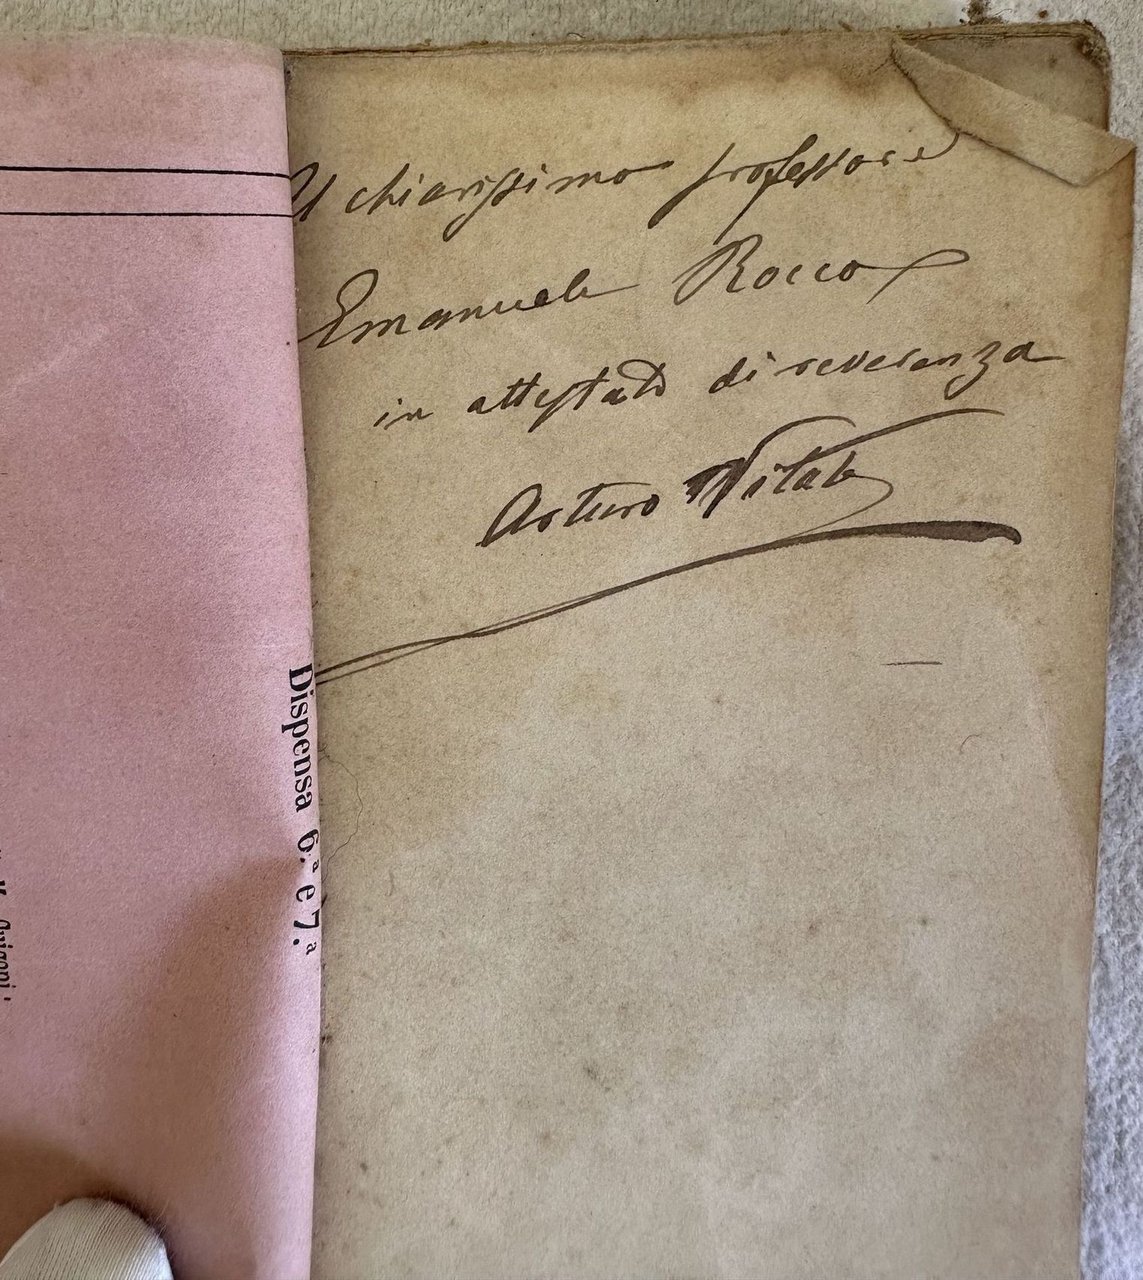 Al chiarissimo professore
Emanuele Rocco
in attestato di reverenza
Arturo Vitale
Dispensa 6.ª e 7.ª